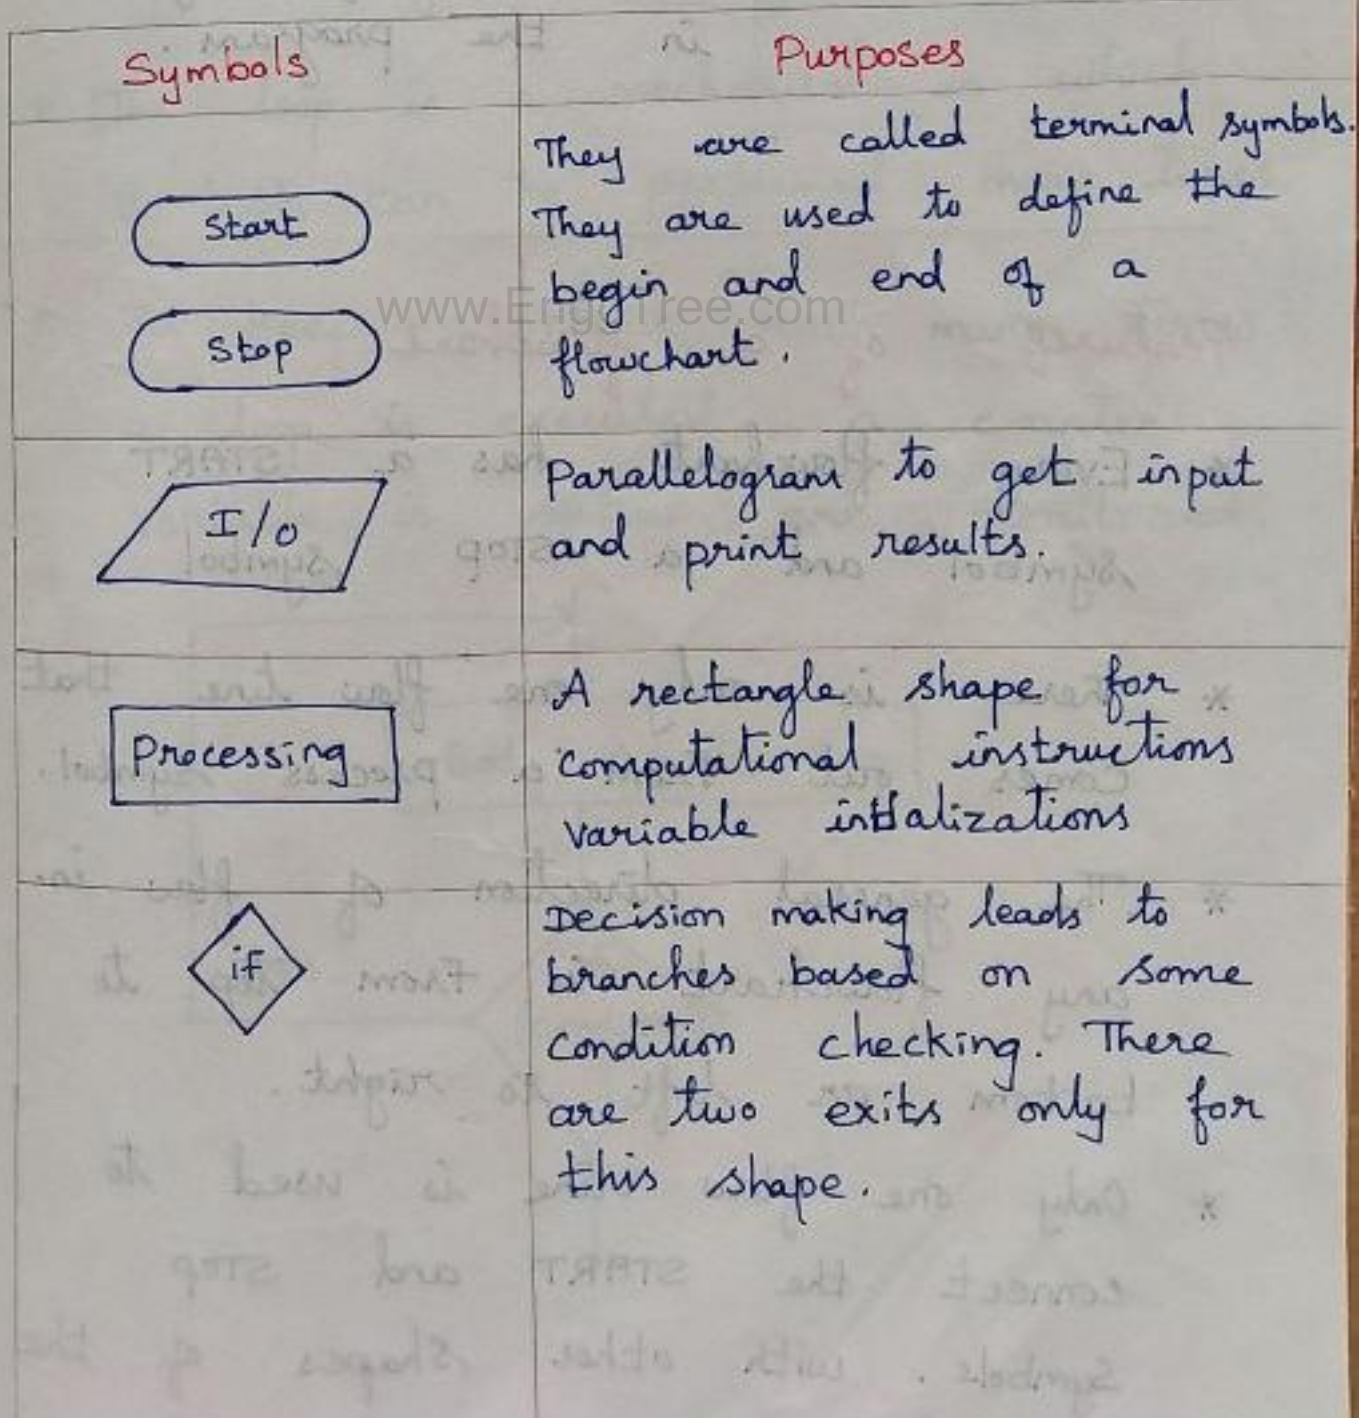 Symbols
Purposes
Start
Stop
They are called terminal symbols.
They are used to define the
begin and end of a
flowchart.
www.EnggTree.com
I/O
Parallelogram to get input
and print results.
Processing
A rectangle shape for
computational instructions
variable intializations
if
Decision making leads to
branches based on some
condition checking. There
are two exits only for
this shape.